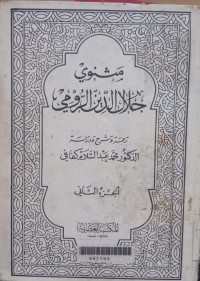 مثنوي
جلال الدين الرومي
ترجمة وشرح ودراسة
الدكتور محمد عبد السلام كفافي
الجزء الثاني
المكتبة العصرية